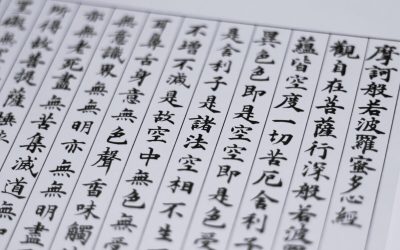 摩訶般若波羅蜜多心經
觀自在菩薩行深般若波羅
蘊皆空度一切苦厄舍利子
異色色即是空空即是色受
是舍利子是諸法空相不生
不增不減是故空中無色
耳鼻舌身意無色聲香味觸
無意識界無無明亦無無明盡
亦無老死盡無苦集滅道無
所得故菩提薩埵依